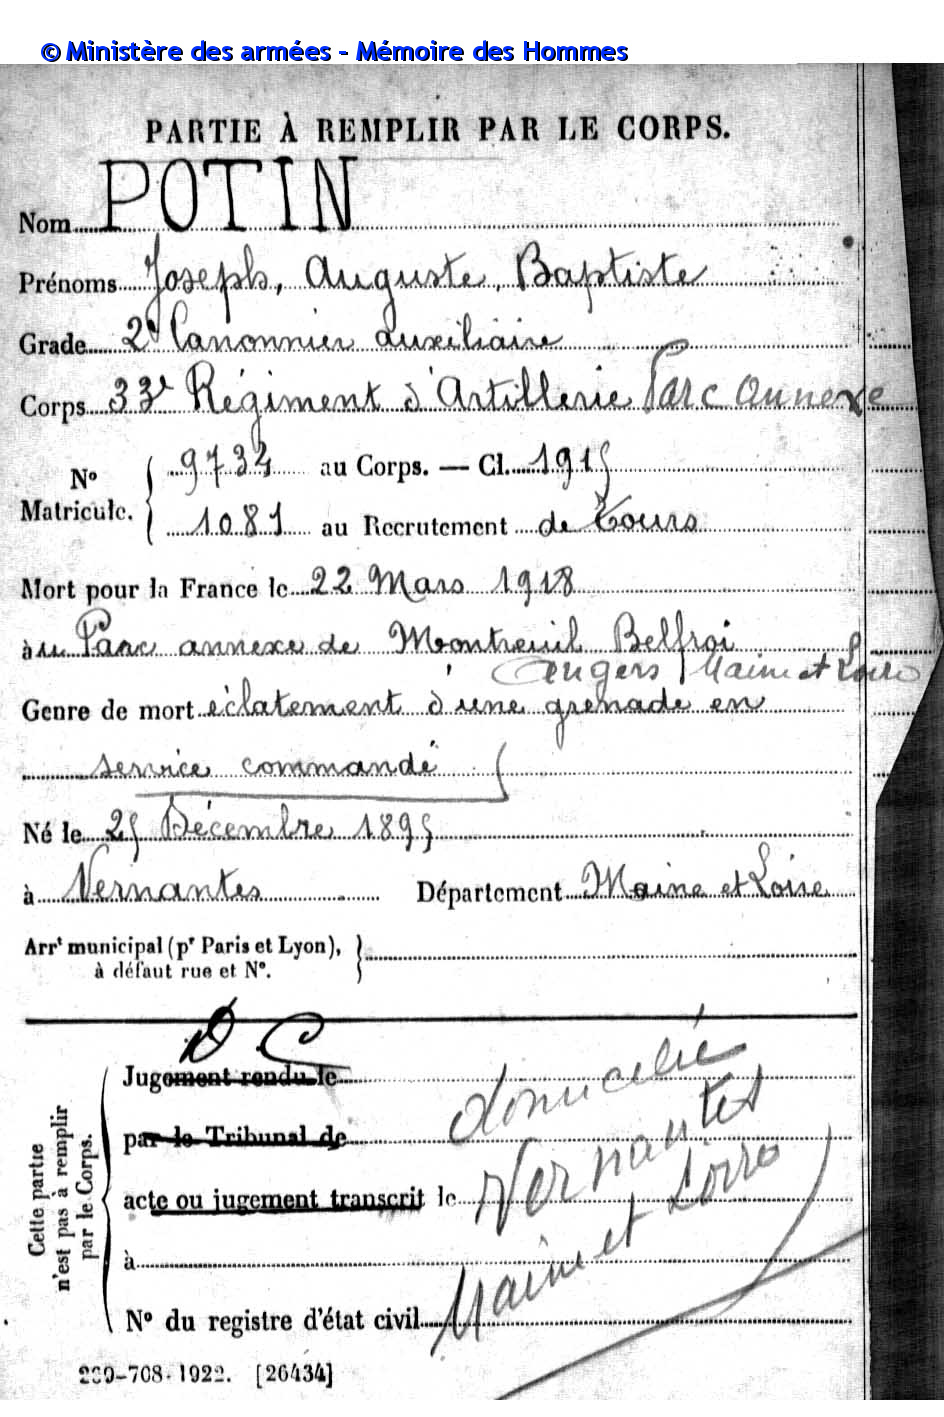 © Ministère des armées - Mémoire des Hommes
PARTIE À REMPLIR PAR LE CORPS.
Nom POTIN
Prénoms Joseph, Auguste, Baptiste
Grade 2e Canonnier auxiliaire
Corps 33e Régiment d'Artillerie Parc annexe
No Matricule. 9734 au Corps. — Cl. 1915
1081 au Recrutement de Tours
Mort pour la France le 22 Mars 1918
àu Parc annexe de Montreuil Belfroi
Angers Maine et Loire
Genre de mort éclatement d'une grenade en
service commandé
Né le 25 Décembre 1895
à Vernantes Département Maine et Loire
Arrt municipal (pr Paris et Lyon),
à défaut rue et No.
D C
Jugement rendu le
par le Tribunal de
acte ou jugement transcrit le
à
No du registre d'état civil
domicilié
Vernantes
Maine et Loire
Cette partie
n'est pas à remplir
par le Corps.
260-708-1922. [26434]